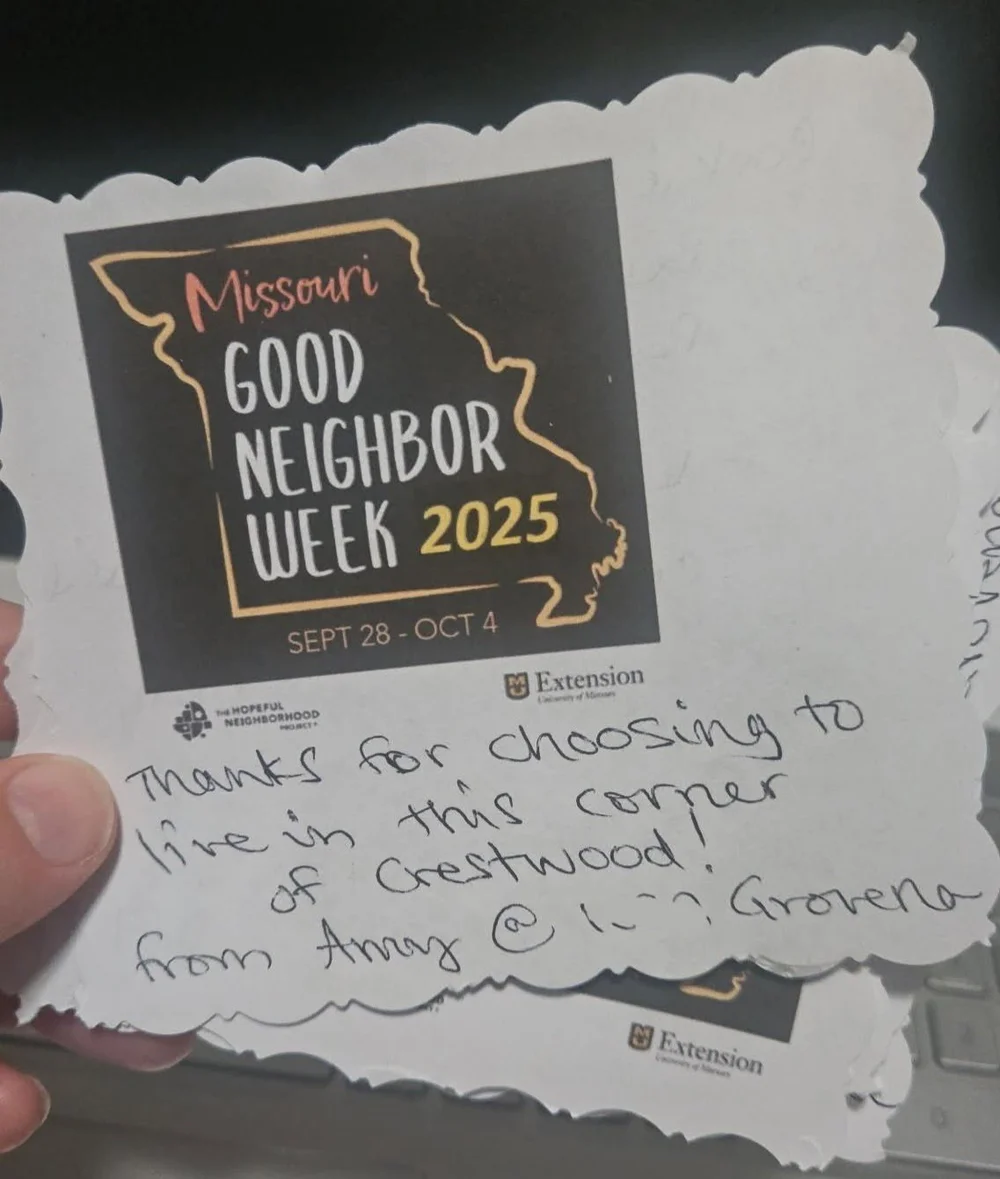 Missouri
GOOD
NEIGHBOR
WEEK 2025
SEPT 28 - OCT 4
THE HOPEFUL
NEIGHBORHOOD
PROJECT
MU Extension
University of Missouri
Thanks for choosing to
live in this corner
of Crestwood!
from Amy @ Grovena
MU Extension
University of Missouri